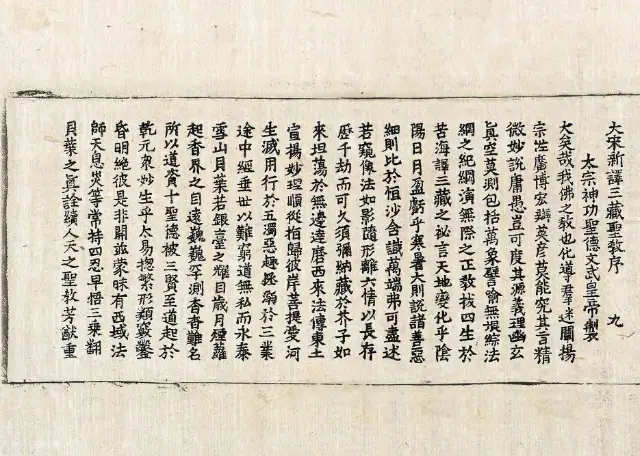 大宋新譯三藏聖教序 九
太宗神功聖德文武皇帝製
大矣哉我佛之教也化導羣迷闡揚
宗性廣博宏辯英彦莫能究其言精
微妙說庸愚豈可度其源義理幽玄
眞空莫測包括萬象譬喻無垠綜法
網之紀綱演無際之正教拔四生於
苦海譯三藏之秘言天地變化乎陰
陽日月盈虧乎寒暑大則說諸善惡
細則比於恒沙含識萬端弗可盡述
若窺像法如影隨形離六情以長存
歷千劫而可久須彌納藏於芥子如
來坦蕩於無邊達磨西來法傳東土
宣揚妙理順從指歸彼岸菩提愛河
生滅用行於五濁惡趣拯溺於三業
途中經垂世以難窮道無私而永泰
雪山貝葉若銀臺之耀目歲月煙蘿
起香界之目遠巍巍罕測杳杳難名
所以道資十聖德被三賢至道起於
乾元衆妙生乎太易揔繁形類竅鑿
昏明絶彼是非開茲蒙昧有西域法
師天息災等常持四忍早悟三乘翻
貝葉之眞詮續人天之聖教芳猷重